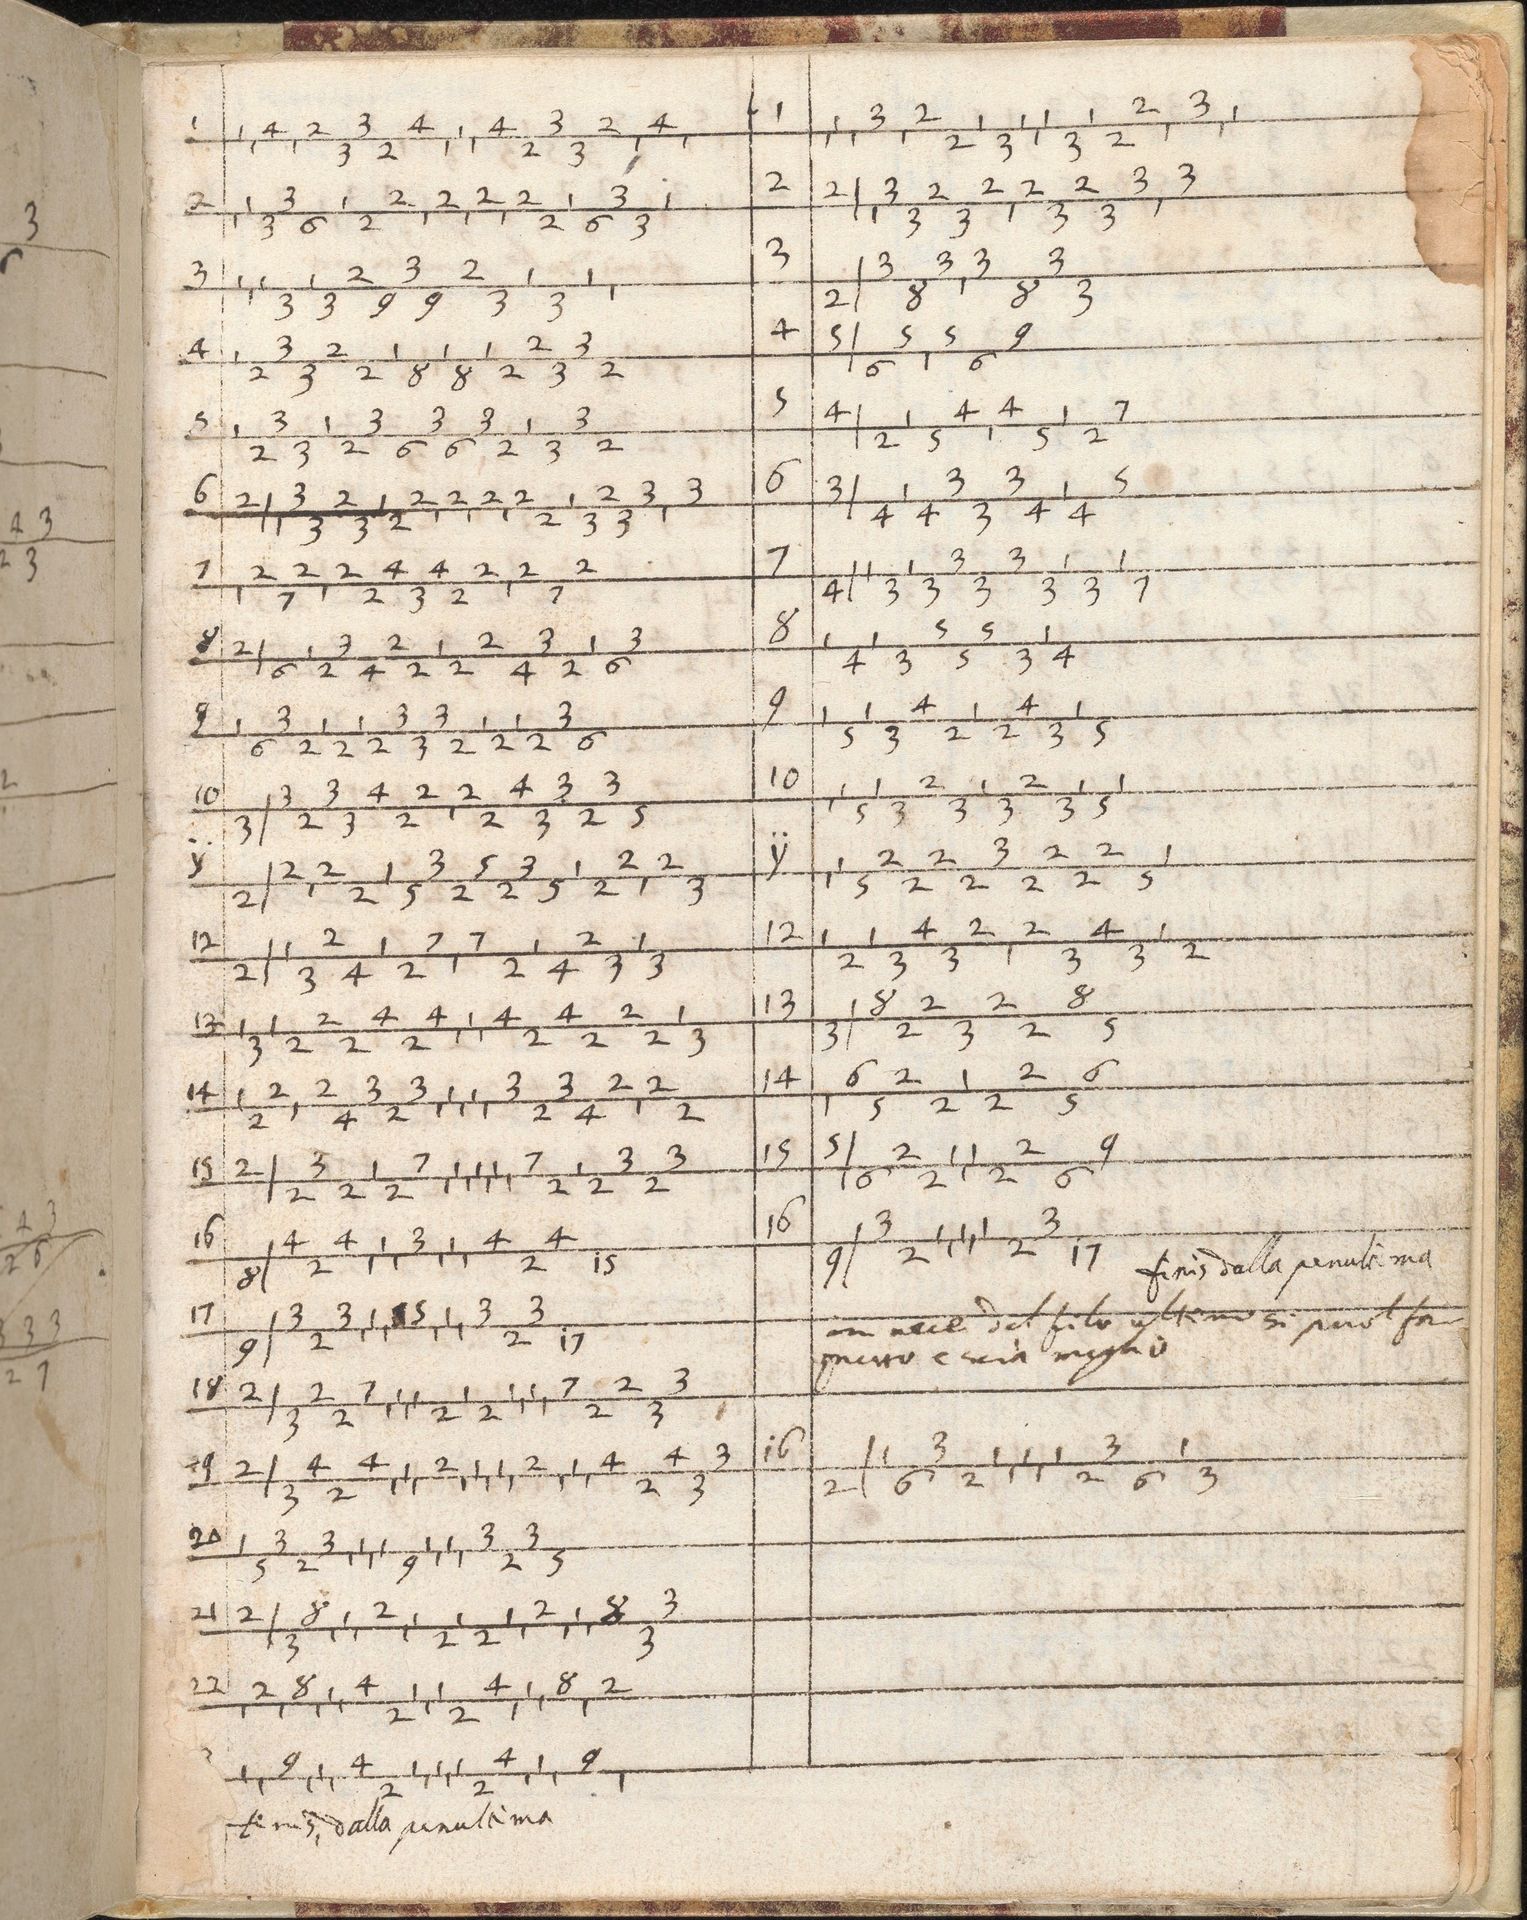 1 1 1 4 1 2 3 3 2 4 1 1 1 4 2 3 3 2 1 4 1
2 1 1 3 3 6 1 2 2 1 2 1 2 1 2 2 1 6 3 3 1
3 1 1 1 3 1 3 2 9 3 9 2 3 1 3 1 1
4 1 2 3 3 2 2 1 8 1 8 1 2 2 3 3 2
5 1 2 3 3 1 2 3 6 3 6 3 2 1 3 3 2
6 2/ 1 3 3 2 3 1 2 2 1 2 1 2 1 2 2 1 3 2 3 3 1 3
7 1 2 7 2 1 2 2 4 3 4 2 2 1 2 7 2
8 2/ 6 1 2 3 4 2 2 1 2 2 4 3 2 1 6 3
9 1 6 3 2 1 2 1 2 3 3 3 2 1 2 1 2 3 6
10 3/ 3 2 3 3 4 2 2 1 2 2 4 3 3 2 3 5
ÿ 2/ 2 1 2 2 1 5 3 2 5 2 3 5 1 2 2 1 2 3
12 2/ 1 3 2 4 1 2 7 1 7 2 1 4 2 3 1 3
13 1 3 1 2 2 2 4 2 4 1 1 1 4 2 4 2 2 2 1 3
14 1 2 2 1 2 4 3 2 3 1 1 1 1 1 3 2 3 4 2 1 2 2
15 2/ 2 3 2 1 2 7 1 1 1 1 1 1 1 7 2 1 2 3 2 3
16 8/ 4 2 4 1 1 1 3 1 1 1 4 2 4 15
17 9/ 3 2 3 1 1 1 5 1 1 1 3 2 3 17
18 2/ 3 2 2 7 1 1 1 1 2 1 2 1 1 1 1 7 2 2 3 3
19 2/ 3 4 2 4 1 1 1 2 1 1 1 1 1 2 1 1 1 4 2 4 3 3
20 1 5 3 2 3 1 1 1 1 9 1 1 1 1 3 2 3 5
21 2/ 3 8 1 1 1 2 1 1 2 1 2 1 1 2 1 1 1 8 3 3
22 1 2 1 8 1 1 1 4 2 1 1 1 2 4 1 1 1 8 1 2
1 1 9 1 1 1 4 2 1 1 1 1 1 2 4 1 1 1 9 1
finis, dalla penultima
1 1 1 1 3 1 2 2 1 3 1 1 1 3 1 2 2 1 3 1 1
2 2/ 1 3 3 2 3 2 1 2 3 2 3 3 1 3
3 2/ 3 8 3 1 3 8 3 3
4 5/ 6 5 1 5 6 9
5 4/ 2 1 5 4 1 4 5 1 2 7
6 3/ 4 1 4 3 3 3 4 1 4 5
7 4/ 1 3 1 3 3 3 3 3 1 3 1 7
8 1 4 1 3 5 5 5 3 1 4
9 1 5 1 3 4 2 1 2 4 3 1 5
10 1 1 5 1 3 2 3 1 3 2 3 1 5 1
ÿ 1 1 5 2 2 2 2 3 2 2 2 2 5 1
12 1 2 1 3 4 3 2 1 2 3 4 3 1 2
13 3/ 8 2 2 3 2 2 8 5
14 1 6 5 2 2 1 2 2 5 6
15 5/ 6 2 2 1 1 1 2 2 6 9
16 9/ 3 2 1 1 1 1 1 2 3 17
finis dalla penultima
del filo ultimo si puol far
questo e meglio
16 2/ 1 6 3 2 1 1 1 1 1 2 3 6 1 3